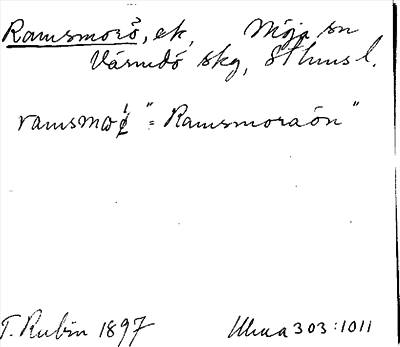 Ramsmorå, ek, Möja sn
Värmdö skg, Sthms l.
ramsmo "= Ramsmoraön"
T. Rubin 1897 Uhua 303:1011